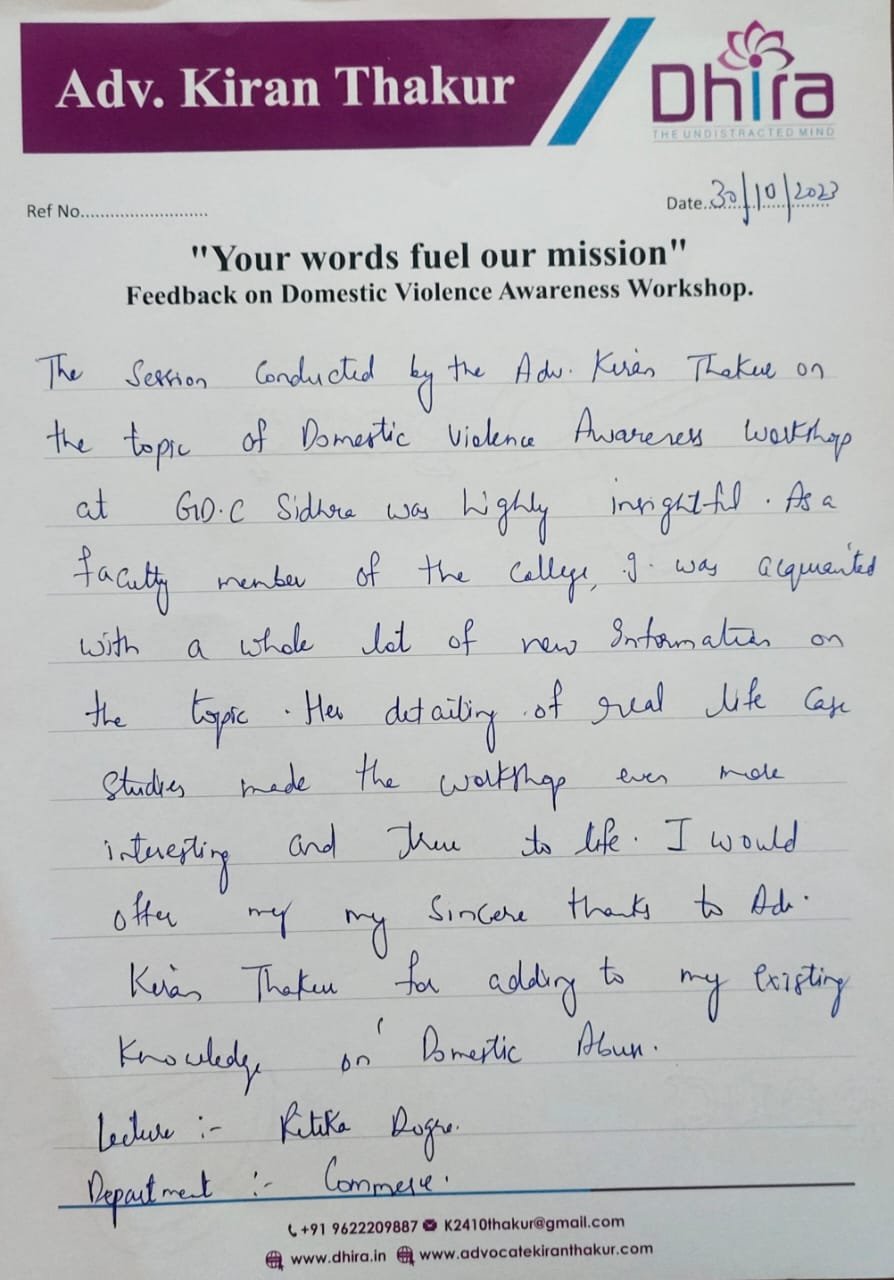 Adv. Kiran Thakur
Dhira
THE UNDISTRACTED MIND
Ref No..........................
Date..30/10/2023
"Your words fuel our mission"
Feedback on Domestic Violence Awareness Workshop.
The Session Conducted by the Adv. Kiran Thakur on
the topic of Domestic Violence Awareness Workshop
at GD.C Sidhra was highly insightful. As a
faculty member of the College, I was acquainted
with a whole lot of new Information on
the topic. Her detailing of real life Case
Studies made the workshop even more
interesting and true to life. I would
offer my my Sincere thanks to Adv.
Kiran Thakur for adding to my existing
Knowledge on Domestic Abuse.
Lecture :- Ritika Dogra.
Department :- Commerce.
+91 9622209887 K2410thakur@gmail.com
www.dhira.in www.advocatekiranthakur.com